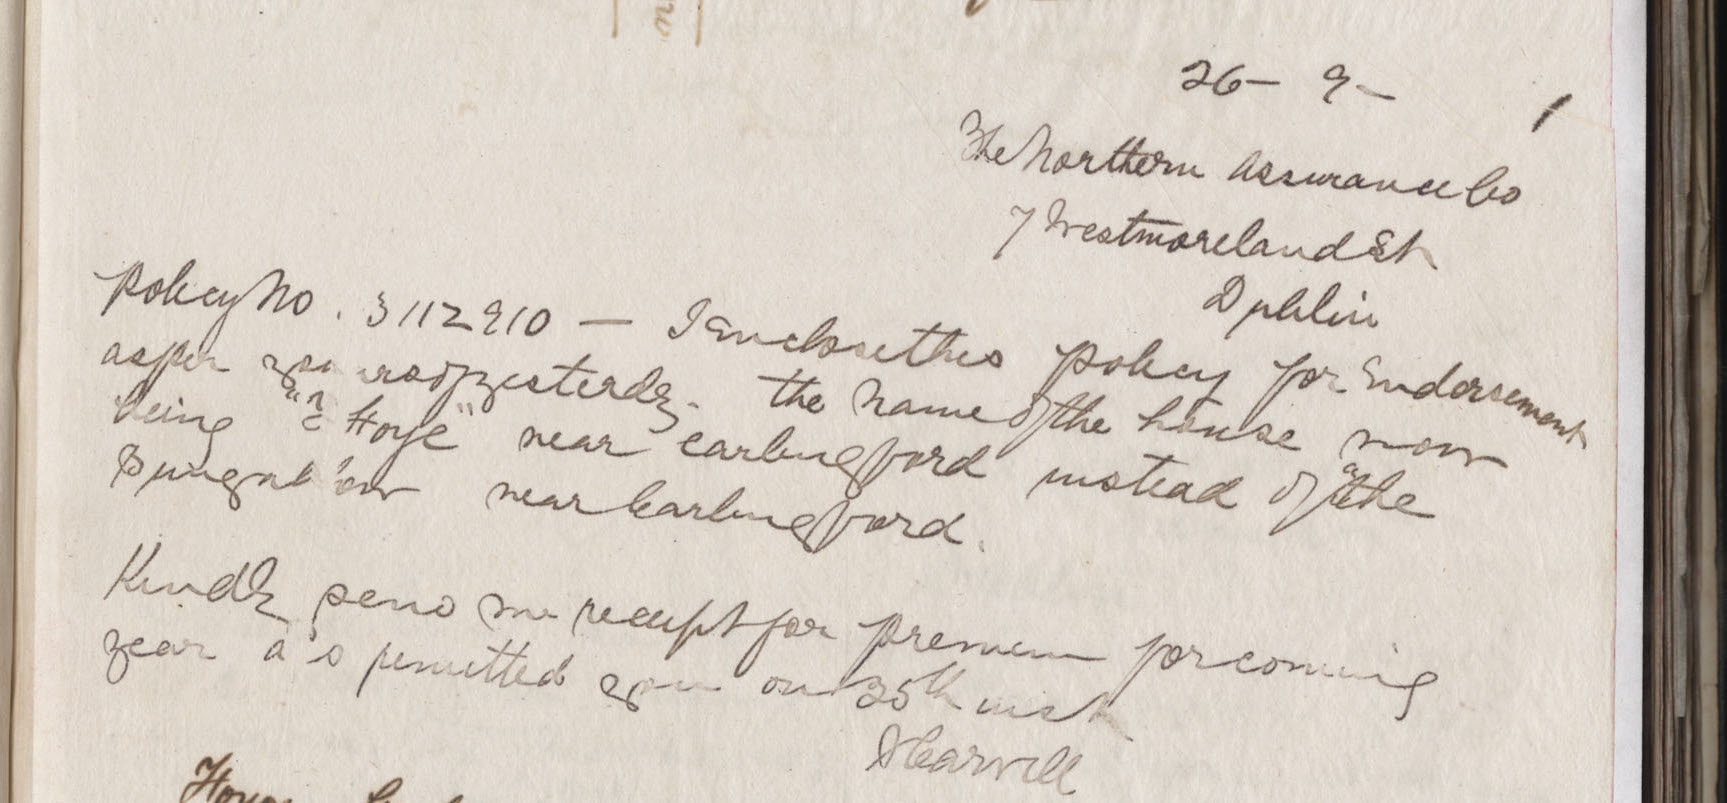 26 – 9 –
The Northern Assurance Co
7 Westmoreland St
Dublin
Policy No. 3112910 — I Enclose this policy for Endorsement
as per yours of yesterdy. the name of the house now
being "Hoye" near Carlingford instead of the
Bungalow near Carlingford.
Kindly send me receipt for premium for coming
year as permitted you on 25th inst
Carvill